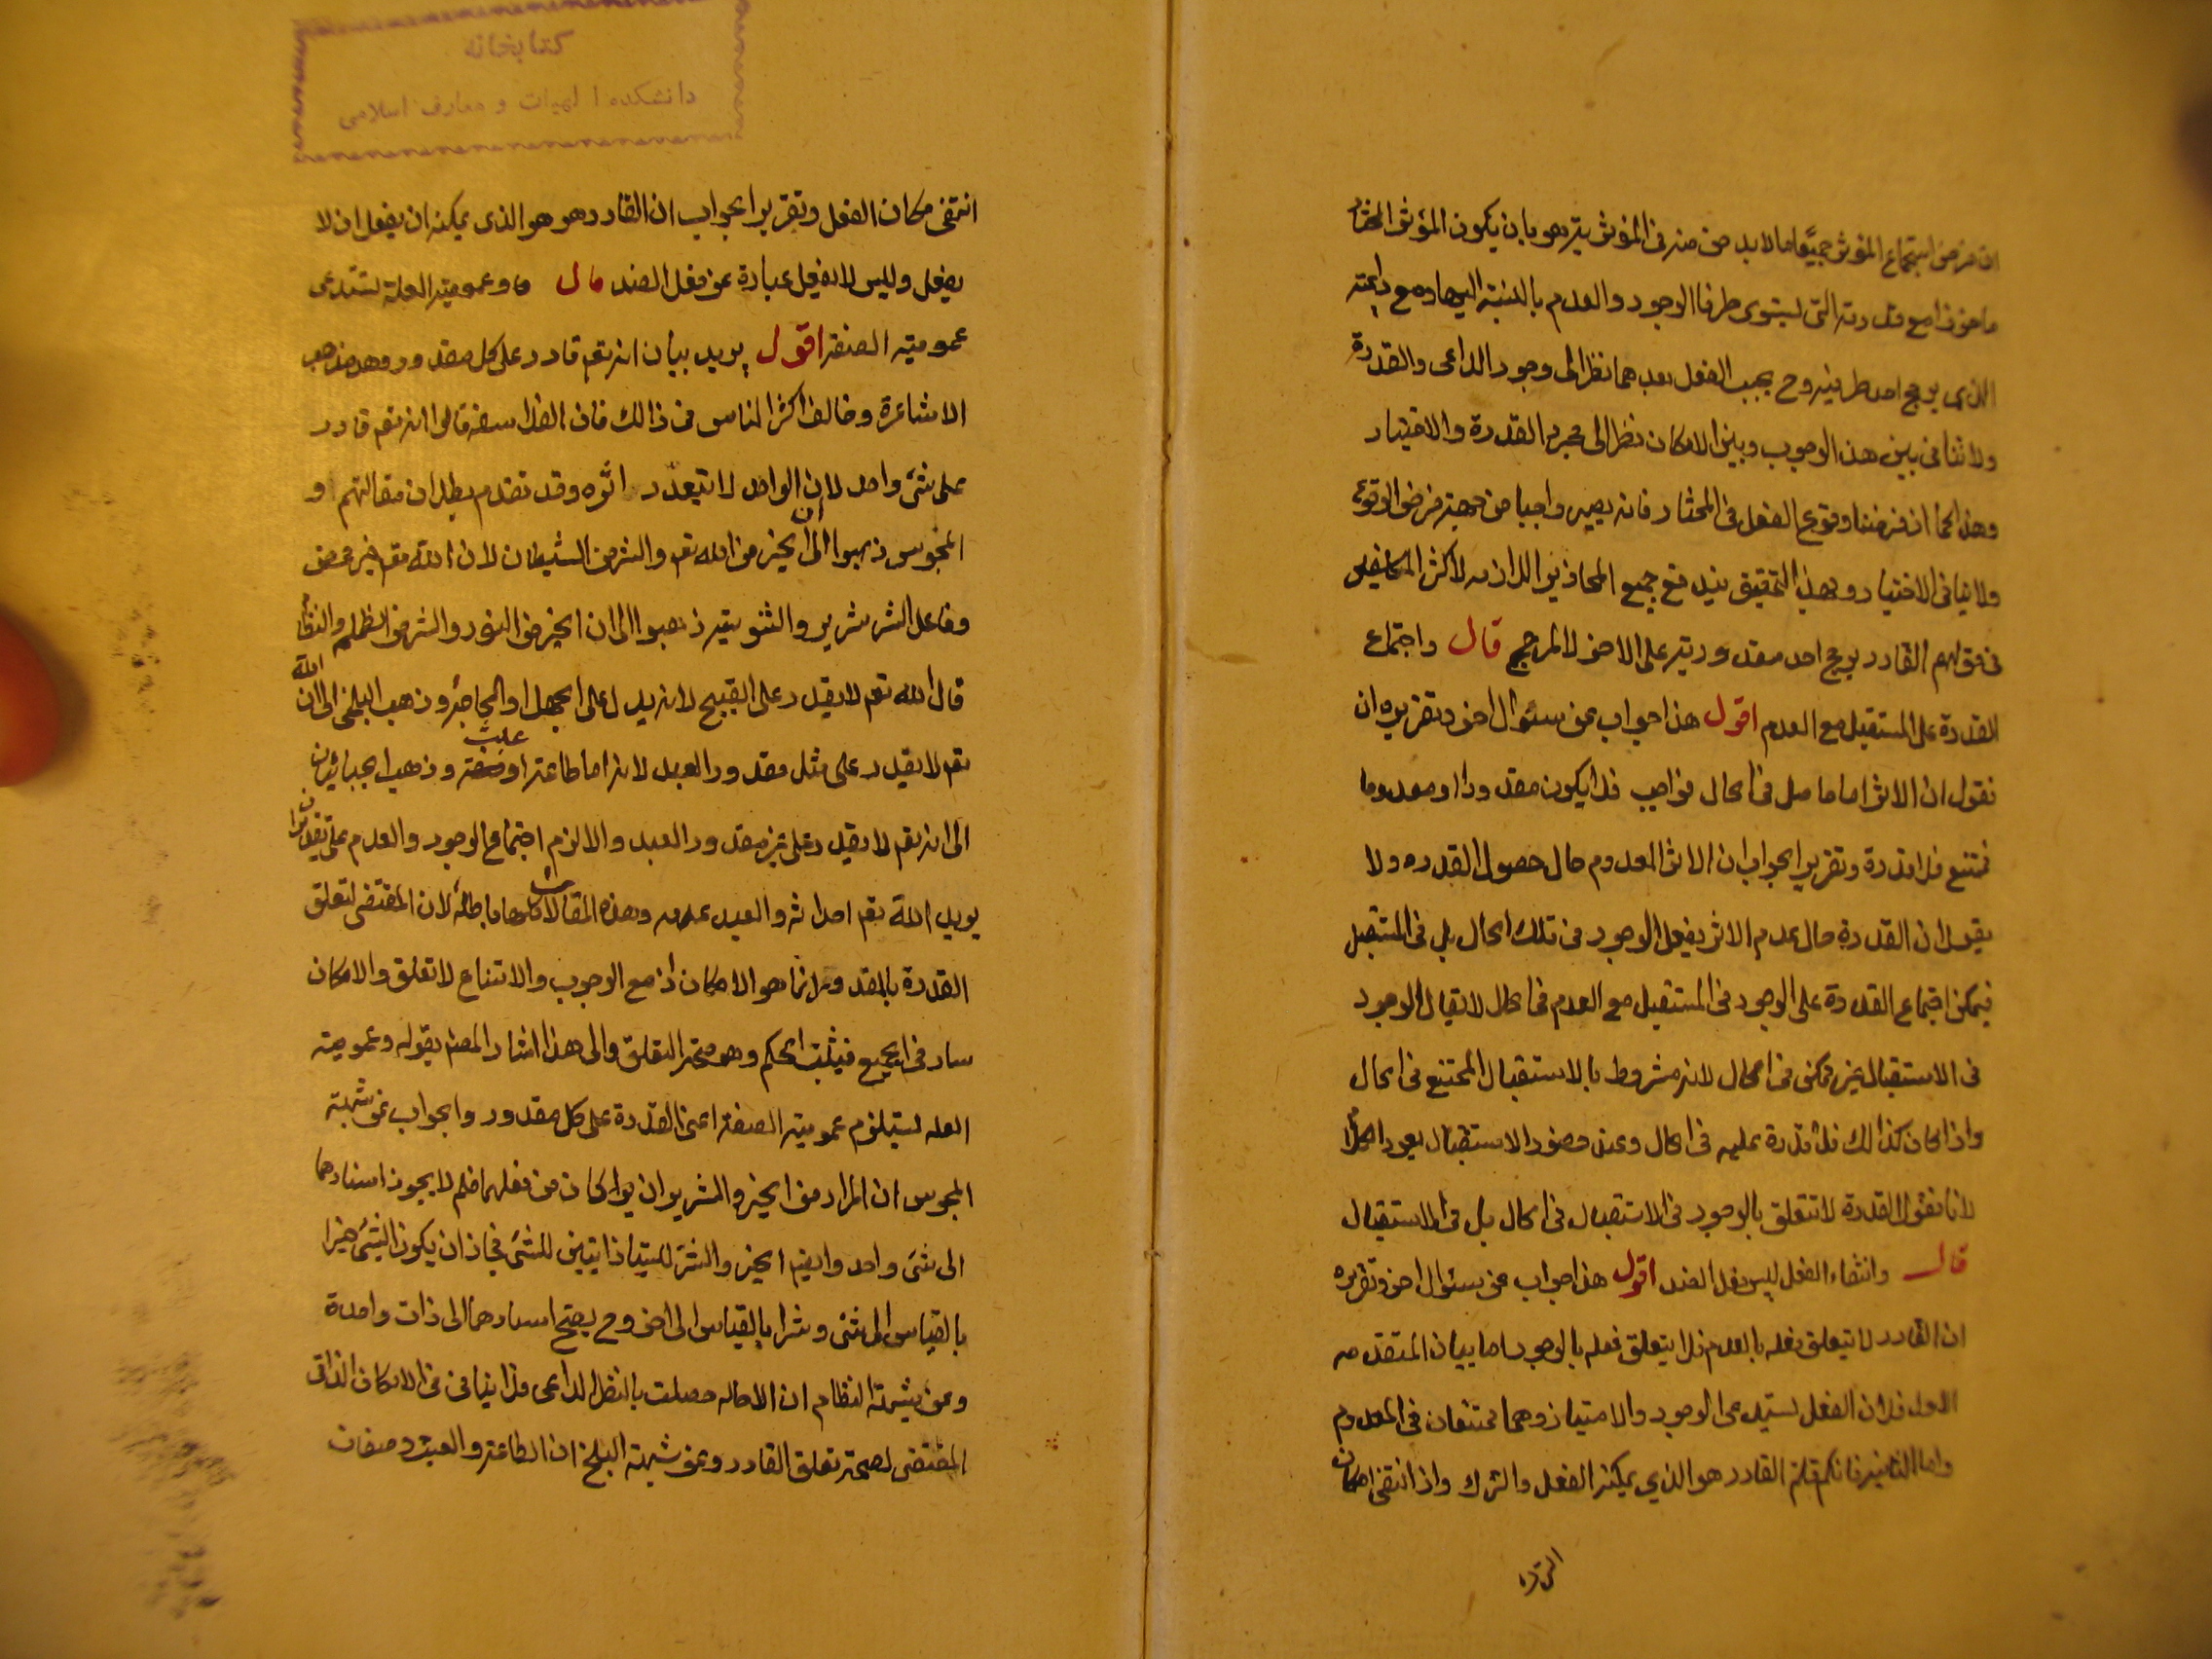 ان فرض استجماع المؤثر جميع ما لابد منه في المؤثرية هو بان يكون المؤثر المختار
ماخوذا مع قدرته التي يستوى طرفا الوجود والعدم بالنسبة اليها ومع داعيته
الذي يرجح احد طرفيه وح يجب الفعل بعدهما نظرا الى وجود الداعى والقدرة
ولا تنافى بين هذا الوجوب وبين الامكان نظرا الى مجرد القدرة والاختيار
وهذا كما اذا فرضنا وقوع الفعل في المختار فانه يصير واجبا من جهة فرض الوقوع
ولا ينافى الاختيار وبهذا التحقيق يندفع جميع المحاذير اللازمه لاكثر المتكلمين
في قولهم القادر يرجح احد مقدوريه على الاخر لا لمرجح قال واجتماع
القدرة على المستقبل مع العدم اقول هذا جواب عن سئوال اخر وتقريره ان
نقول ان الاثر اما حاصل في الحال فواجب فلا يكون مقدورا او معدوما
فممتنع فلا قدرة وتقرير الجواب ان الاثر المعدوم حال حصول القدره ولا
يقول ان القدرة حال عدم الاثر يفعل الوجود في تلك الحال بل في المستقبل
فيمكن اجتماع القدرة على الوجود في المستقبل مع العدم في الحال لا يقال الوجود
في الاستقبال غير ممكن في الحال لانه مشروط بالاستقبال الممتنع في الحال
واذا كان كذالك فلا قدرة عليه في الحال وعند حضور الاستقبال يعود الكلام
لانا نقول القدرة لا تتعلق بالوجود في الاستقبال في الحال بل في الاستقبال
قال وانتفاء الفعل ليس فعل الضد اقول هذا جواب عن سئوال اخر وتقريره
ان القادر لا يتعلق فعله بالعدم فلا يتعلق فعله بالوجود اما بيان المتقدمه
الاول فلان الفعل يستدعى الوجود والامتياز وهما ممتنعان في المعدوم
واما الثانيه فانكم قلتم القادر هو الذي يمكنه الفعل والترك واذا انتفى امكان
الترك
كتابخانه
دانشكده الهيات و معارف اسلامى
انتفى مكان الفعل وتقرير الجواب ان القادر هو هو الذى يمكنه ان يفعل ان لا
يفعل وليس لا يفعل عبارة عن فعل الضد قال وعموميته العلة تستدعى
عموميته الصفة اقول يريد بيان انه تعم قادر على كل مقدور وهو مذهب
الاشاعرة وخالف اكثر الناس في ذالك فان الفلاسفه قالوا انه تعم قادر
على شئ واحد لان الواحد لا يتعدد اثره وقد تقدم بطلان مقالتهم و
المجوس ذهبوا الى ان الخير من الله تعم والشر من الشيطان لان الله تعم خير محض
وفاعل الشر شرير والثنويته ذهبوا الى ان الخير من النور والشر من الظلمه والنظام
قال الله تعم لا يقدر على القبيح لانه يدل على الجهل او الحاجة وذهب البلخى الى ان الله
تعم لا يقدر على مثل مقدور العبد لانه اما طاعة او عبث وذهب الجبائيان
الى انه تعم لا يقدر على عين مقدور العبد والا لزم اجتماع الوجود والعدم على تقدير ان
يريد الله تعم احداثه والعبد عدمه وهذه المقالات كلها باطلة لان المقتضى لتعلق
القدرة بالمقدور انما هو الامكان اذ مع الوجوب والامتناع لا تعلق والامكان
سار في الجميع فيثبت الحكم وهو صحة التعلق والى هذا اشار المصنف بقوله وعموميته
العله يستلزم عموميته الصفة اعنى القدرة على كل مقدور والجواب عن شبهة
المجوس ان المراد من الخير والشرير ان كان من فعلهما فلم لا يجوز اسنادهما
الى شئ واحد وايضا الخير والشر ليستا ذاتيتين للشئ فجاز ان يكون الشئ خيرا
بالقياس الى شئ وشرا بالقياس الى اخر وح يصح اسنادهما الى ذات واحدة
وعن شبهة النظام ان الاحاله حصلت بالنظر الى الداعى فلا ينافى في الامكان الذاتى
المقتضى لصحة تعلق القادر وعن شبهة البلخى ان الطاعة والعبث وصفان